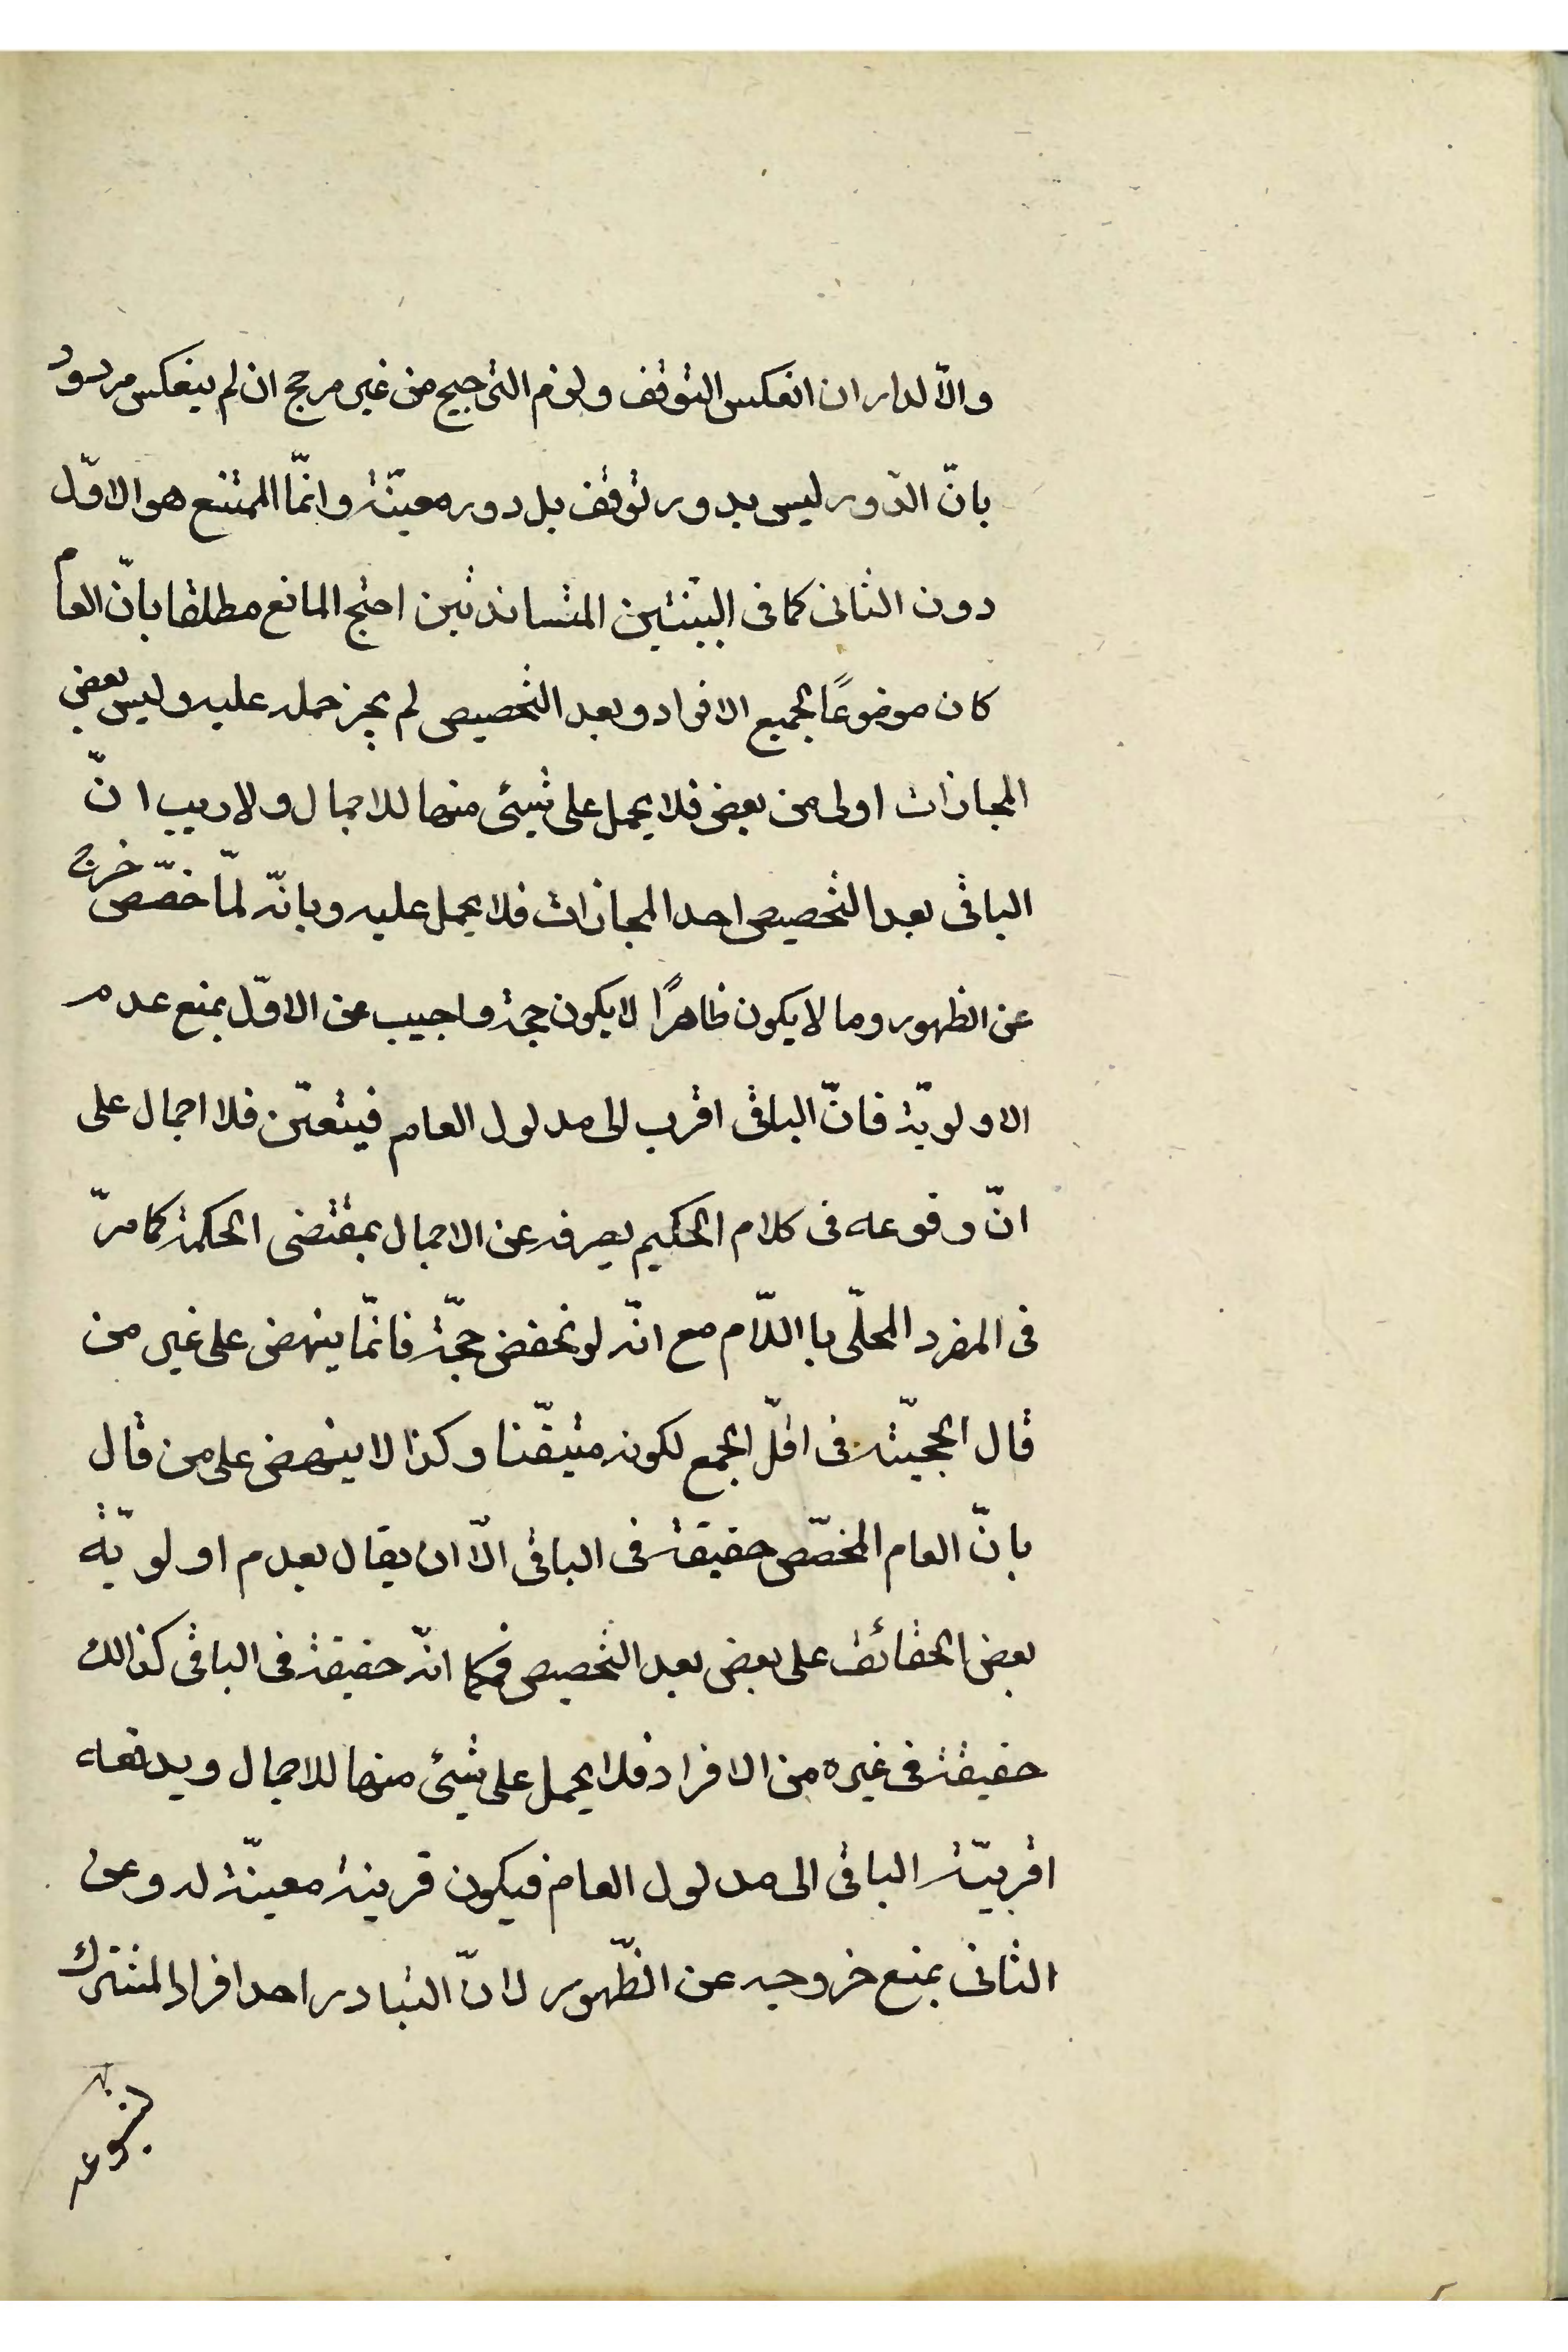 والّا لدار ان انعكس التوقف ولزم الترجيح من غير مرجح ان لم ينعكس مردود
بانّ الدّور ليس بدور توقف بل دور معيّة وانمّا الممتنع هو الاوّل
دون الثانى كما فى البينتين المتساندتين احتج المانع مطلقا بانّ العام
كان موضوعًا لجميع الافراد وبعد التخصيص لم يجز حمله عليه وليس بعض
المجازات اولى من بعض فلا يحمل على شيئى منها للاجمال ولاريب انّ
الباقى بعد التخصيص احد المجازات فلا يحمل عليه وبانّه لمّا خصّص خرج
عن الظهور وما لا يكون ظاهرًا لا يكون حجة واجيب عن الاوّل بمنع عدم
الاولويّة فانّ الباقى اقرب الى مدلول العام فيتعيّن فلا اجمال على
انّ وقوعه فى كلام الحكيم يصرفه عن الاجمال بمقتضى الحكمة كما مرّ
فى المفرد المحلّى با اللّام مع انّه لو نحفض حجّة فانمّا ينهض على غير من
قال الحجيّته فى اقلّ الجمع لكونه متيقّنا وكذا لا ينهض على من قال
بانّ العام المخصّص حقيقة فى الباقى الّا ان يقال بعدم اولويّة
بعض الحقائق على بعض بعد التخصيص فكما انّه حقيقة فى الباقى كذالك
حقيقة فى غيره من الافراد فلا يحمل على شيئى منها للاجمال ويدفعه
اقربيّة الباقى الى مدلول العام فيكون قرينة معيّنة له وعن
الثانى بمنع خروجه عن الظّهور لانّ التبادر احد افراد المشترك